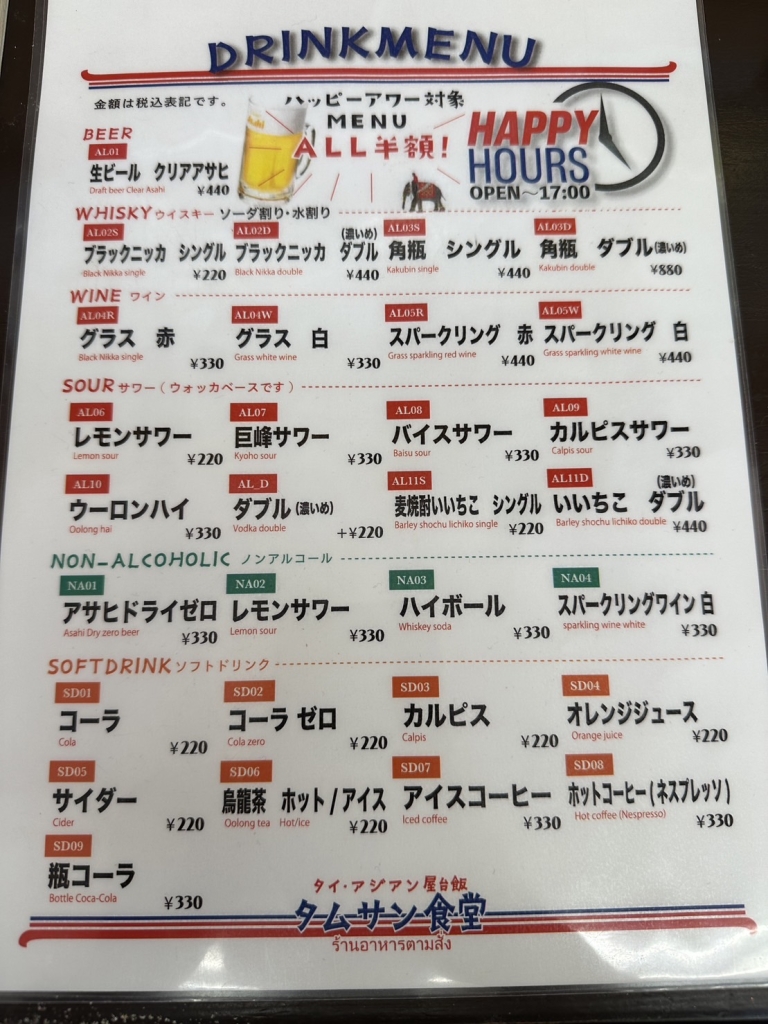 DRINKMENU
金額は税込表記です。
ハッピーアワー対象
MENU
ALL半額!
HAPPY
HOURS
OPEN～17:00
BEER
AL01
生ビール クリアアサヒ
Draft beer Clear Asahi
¥440
WHISKY ウイスキー ソーダ割り・水割り
AL02S
ブラックニッカ シングル
Black Nikka single
¥220
AL02D
(濃いめ)
ブラックニッカ ダブル
Black Nikka double
¥440
AL03S
角瓶 シングル
Kakubin single
¥440
AL03D
角瓶 ダブル(濃いめ)
Kakubin double
¥880
WINE ワイン
AL04R
グラス 赤
Black Nikka single
¥330
AL04W
グラス 白
Grass white wine
¥330
AL05R
スパークリング 赤
Grass sparkling red wine
¥440
AL05W
スパークリング 白
Grass sparkling white wine
¥440
SOUR サワー(ウォッカベースです)
AL06
レモンサワー
Lemon sour
¥220
AL07
巨峰サワー
Kyoho sour
¥330
AL08
バイスサワー
Baisu sour
¥330
AL09
カルピスサワー
Calpis sour
¥330
AL10
ウーロンハイ
Oolong hai
¥330
AL_D
ダブル(濃いめ)
Vodka double
+¥220
AL11S
麦焼酎いいちこ シングル
Barley shochu Iichiko single
¥220
AL11D
(濃いめ)
いいちこ ダブル
Barley shochu Iichiko double
¥440
NON-ALCOHOLIC ノンアルコール
NA01
アサヒドライゼロ
Asahi Dry zero beer
¥330
NA02
レモンサワー
Lemon sour
¥330
NA03
ハイボール
Whiskey soda
¥330
NA04
スパークリングワイン 白
sparkling wine white
¥330
SOFTDRINK ソフトドリンク
SD01
コーラ
Cola
¥220
SD02
コーラ ゼロ
Cola zero
¥220
SD03
カルピス
Calpis
¥220
SD04
オレンジジュース
Orange juice
¥220
SD05
サイダー
Cider
¥220
SD06
烏龍茶 ホット / アイス
Oolong tea Hot/ice
¥220
SD07
アイスコーヒー
Iced coffee
¥330
SD08
ホットコーヒー(ネスプレッソ)
Hot coffee (Nespresso)
¥330
SD09
瓶コーラ
Bottle Coca-Cola
¥330
タイ・アジアン屋台飯
タムサン食堂
ร้านอาหารตามสั่ง